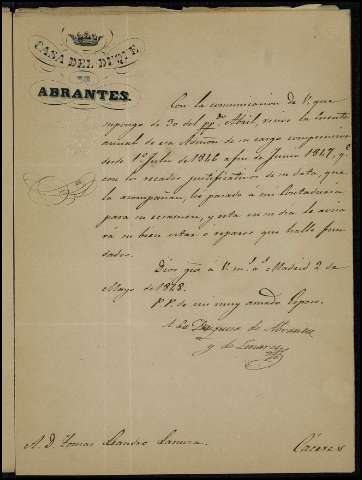 CASA DEL DUQUE
DE
ABRANTES.
Con la comunicacion de V. que
supongo de 30 del pp.do Abril, recivo la cuenta
annual de esa Admon de su cargo comprensiva
desde 1º Julio de 1846 a fin de Junio 1847, q.e
con los recados justificativos de su data, que
la acompañan, he pasado á mi Contaduria
para su ecsamen, y esta en su dia le avisa
rá su buen estar o reparos que halle fun
dados.
Dios gue á V. m.s a.s Madrid 2 de
Mayo de 1848.
P.P. de mi muy amado Esposo.
La Duquesa de Abrantes
y de Linares
A D. Tomas Leandro
Cáceres